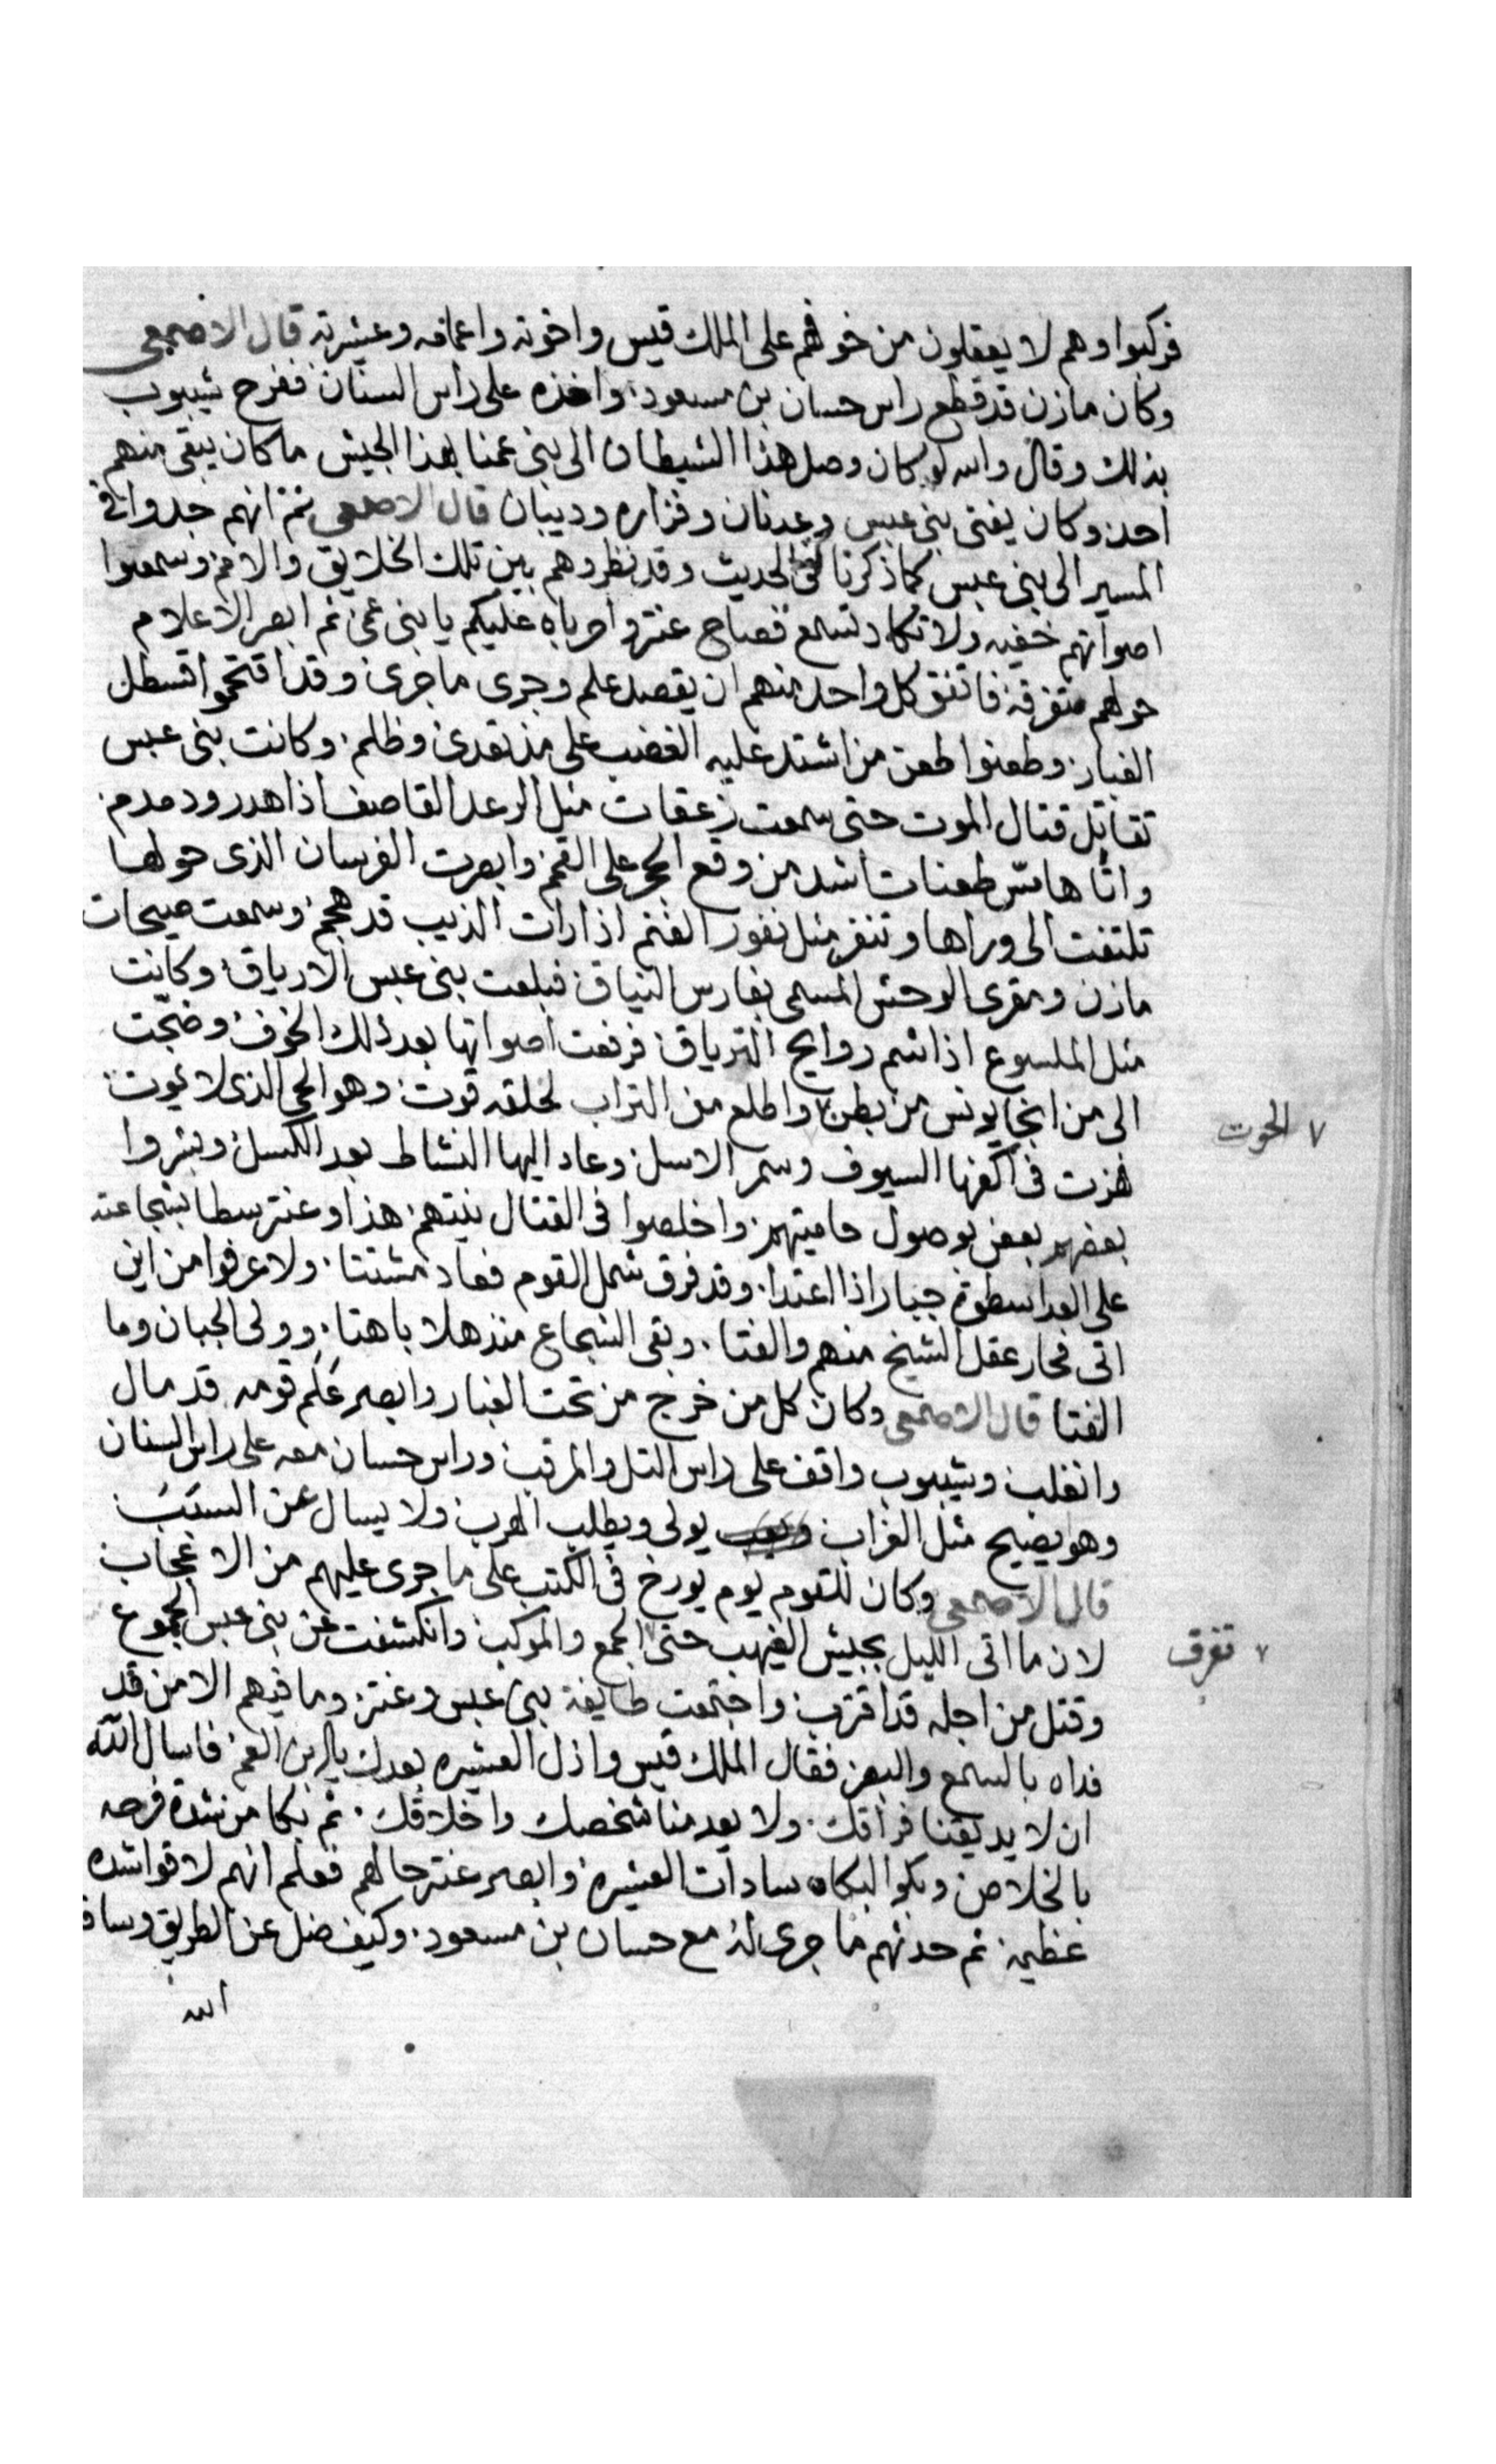 فركبوا وهم لا يعقلون من خوفهم على الملك قيس واخوته واعمامه وعشيرته قال الاصمعى
وكان مازن قد قطع راس حسان بن مسعود واخذه على راس السنان ففرح شيبوب
بذلك وقال والله لو كان وصل هذا الشيطان الى بنى عمنا بهذا الجيش ما كان يبقى منهم
احد وكان يفنى بنى عبس وعدنان وفزاره وديبان قال الاصمعى ثم انهم جدوا فى
المسير الى بنى عبس كما ذكرنا فى الحديث وقد نظروهم بين تلك الخلايق والامم وسمعوا
اصواتهم خفيه ولا تكاد تسمع فصاح عنتر واحرباه عليكم يا بنى عمى ثم ابصر الاعلام
حولهم متفرقه فاتفق كل واحد منهم ان يقصد علم وجرى ما جرى وقد اقتحموا قسطل
الغبار وطعنوا طعن من اشتد عليه الغضب على من تعدى وظلم وكانت بنى عبس
تقاتل قتال الموت حتى سمعت زعقات مثل الرعد القاصف اذا هدر ودمدم
واتاها مس طعنات اشد من وقع الحجر على القمم وابصرت الفرسان الذى حولها
تلتفت الى وراها وتنفر مثل نفور الغنم اذا رات الذيب قد هجم وسمعت صيحات
مازن ومقرى الوحش المسمى بفارس النياق فبلعت بنى عبس الارياق وكانت
مثل الملسوع اذا شم روايح الترياق فرفعت اصواتها بعد ذلك الخوف وضجت
الى من انجا يونس من بطن ٧ واطلع من التراب لخلقه قوت وهو الحى الذى لا يموت
٧ الحوت
فهزت فى اكفها السيوف وسمر الاسل وعاد اليها النشاط بعد الكسل وبشروا
بعضهم بعض بوصول حاميتهم واخلصوا فى القتال نيتهم هذا وعنتر سطا بشجاعته
على العدا سطوة جبار اذا اعتدا وقد فرق شمل القوم فعاد مشتتا ولا عرفوا من اين
اتى فحار عقل الشيخ منهم والفتا وبقى الشجاع منذهلا باهتا وولى الجبان وما
الفتا قال الاصمعى وكان كل من خرج من تحت الغبار وابصر علم قومه قد مال
وانقلب وشيبوب واقف على راس التل والمرقب وراس حسان معه على راس السنان
وهو يصيح مثل الغراب يولى ويطلب الهرب ولا يسال عن السبب
قال الاصمعى وكان للقوم يوم يورخ فى الكتب على ما جرى عليهم من الاعجاب
لان ما اتى الليل بجيش الغيهب حتى ٧ الجمع والموكب وانكشفت عن بنى عبس الجموع
٧ تفرق
وقتل من اجله قد اقترب واجتمعت طايفة بنى عبس وعنتر وما فيهم الا من قد
فداه بالسمع والبصر فقال الملك قيس واذل العشيره بعدك يا ابن العم فاسال الله
ان لا يديقنا فراقك ولا يعدمنا شخصك واخلاقك ثم بكا من شدة فرحه
بالخلاص وبكوا لبكاه سادات العشيره وابصر عنتر حالهم فعلم انهم لاقوا شده
عظيمه ثم حدثهم ما جرى له مع حسان بن مسعود وكيف ضل عن الطريق وساقه
الله